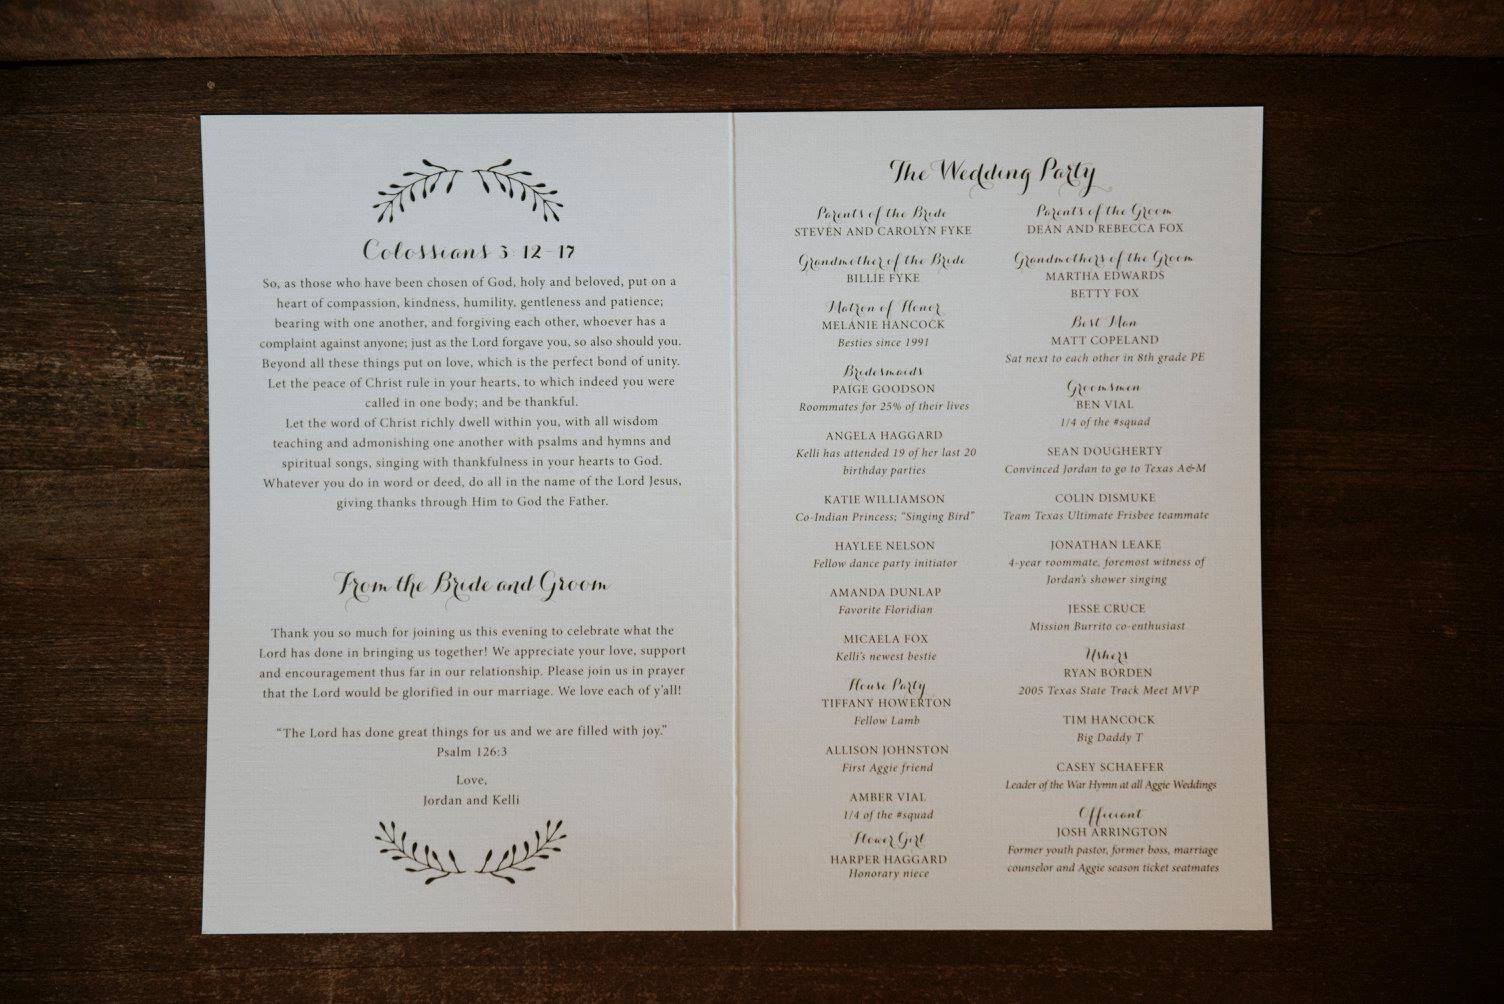 Colossians 3:12-17
So, as those who have been chosen of God, holy and beloved, put on a
heart of compassion, kindness, humility, gentleness and patience;
bearing with one another, and forgiving each other, whoever has a
complaint against anyone; just as the Lord forgave you, so also should you.
Beyond all these things put on love, which is the perfect bond of unity.
Let the peace of Christ rule in your hearts, to which indeed you were
called in one body; and be thankful.
Let the word of Christ richly dwell within you, with all wisdom
teaching and admonishing one another with psalms and hymns and
spiritual songs, singing with thankfulness in your hearts to God.
Whatever you do in word or deed, do all in the name of the Lord Jesus,
giving thanks through Him to God the Father.
From the Bride and Groom
Thank you so much for joining us this evening to celebrate what the
Lord has done in bringing us together! We appreciate your love, support
and encouragement thus far in our relationship. Please join us in prayer
that the Lord would be glorified in our marriage. We love each of y'all!
“The Lord has done great things for us and we are filled with joy.”
Psalm 126:3
Love,
Jordan and Kelli
The Wedding Party
Parents of the Bride
STEVEN AND CAROLYN FYKE
Grandmother of the Bride
BILLIE FYKE
Matron of Honor
MELANIE HANCOCK
Besties since 1991
Bridesmaids
PAIGE GOODSON
Roommates for 25% of their lives
ANGELA HAGGARD
Kelli has attended 19 of her last 20
birthday parties
KATIE WILLIAMSON
Co-Indian Princess; “Singing Bird”
HAYLEE NELSON
Fellow dance party initiator
AMANDA DUNLAP
Favorite Floridian
MICAELA FOX
Kelli's newest bestie
House Party
TIFFANY HOWERTON
Fellow Lamb
ALLISON JOHNSTON
First Aggie friend
AMBER VIAL
1/4 of the #squad
Flower Girl
HARPER HAGGARD
Honorary niece
Parents of the Groom
DEAN AND REBECCA FOX
Grandmothers of the Groom
MARTHA EDWARDS
BETTY FOX
Best Man
MATT COPELAND
Sat next to each other in 8th grade PE
Groomsmen
BEN VIAL
1/4 of the #squad
SEAN DOUGHERTY
Convinced Jordan to go to Texas A&M
COLIN DISMUKE
Team Texas Ultimate Frisbee teammate
JONATHAN LEAKE
4-year roommate, foremost witness of
Jordan's shower singing
JESSE CRUCE
Mission Burrito co-enthusiast
Ushers
RYAN BORDEN
2005 Texas State Track Meet MVP
TIM HANCOCK
Big Daddy T
CASEY SCHAEFER
Leader of the War Hymn at all Aggie Weddings
Officiant
JOSH ARRINGTON
Former youth pastor, former boss, marriage
counselor and Aggie season ticket seatmates